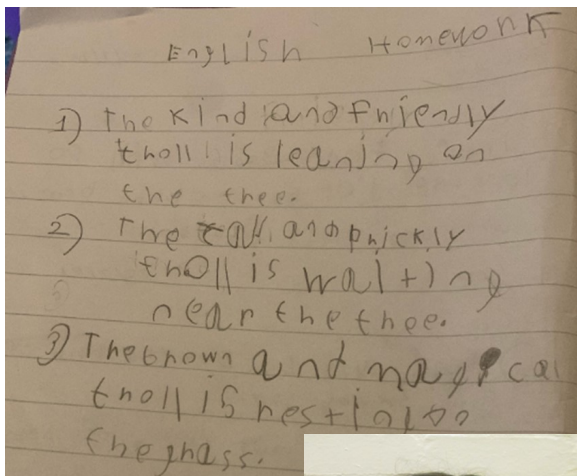 English Homework
1) The kind and friendly
troll is leaning on
the tree.
2) The tall and prickly
troll is waiting
near the tree.
3) The brown and magical
troll is resting on
the grass.